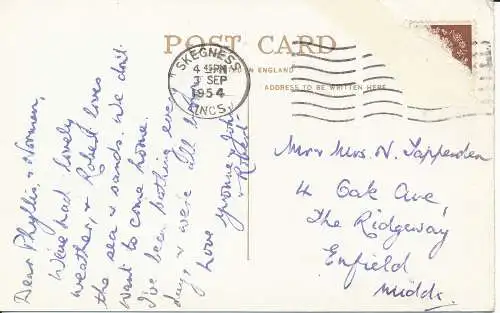 POST CARD
PRINTED IN ENGLAND
ADDRESS TO BE WRITTEN HERE
SKEGNESS
4 45 PM
3 SEP
1954
LINCS.
Dear Phyllis, & Norman,
We've had lovely
weather, & Robert loves
the sea & sands. We don't
want to come home.
I've been bathing every
day, & we're all brown
Love Yvonne & John
& Robert
Mr & Mrs. N. Tappenden
4 Oak Ave,
The Ridgeway
Enfield
Middx.